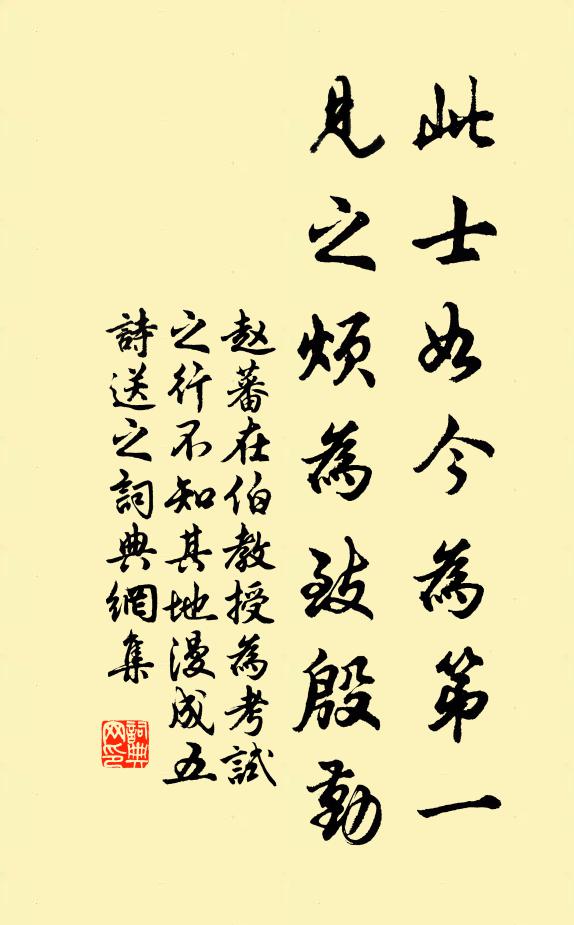 此士如今為第一
見之煩為致殷勤
赵蕃在伯教授為考試
之行不知其地漫成五
詩送之詞典網集
詞典
网印